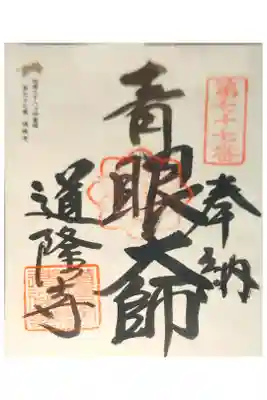 第七十七番
奉納
青眼大師
道隆寺